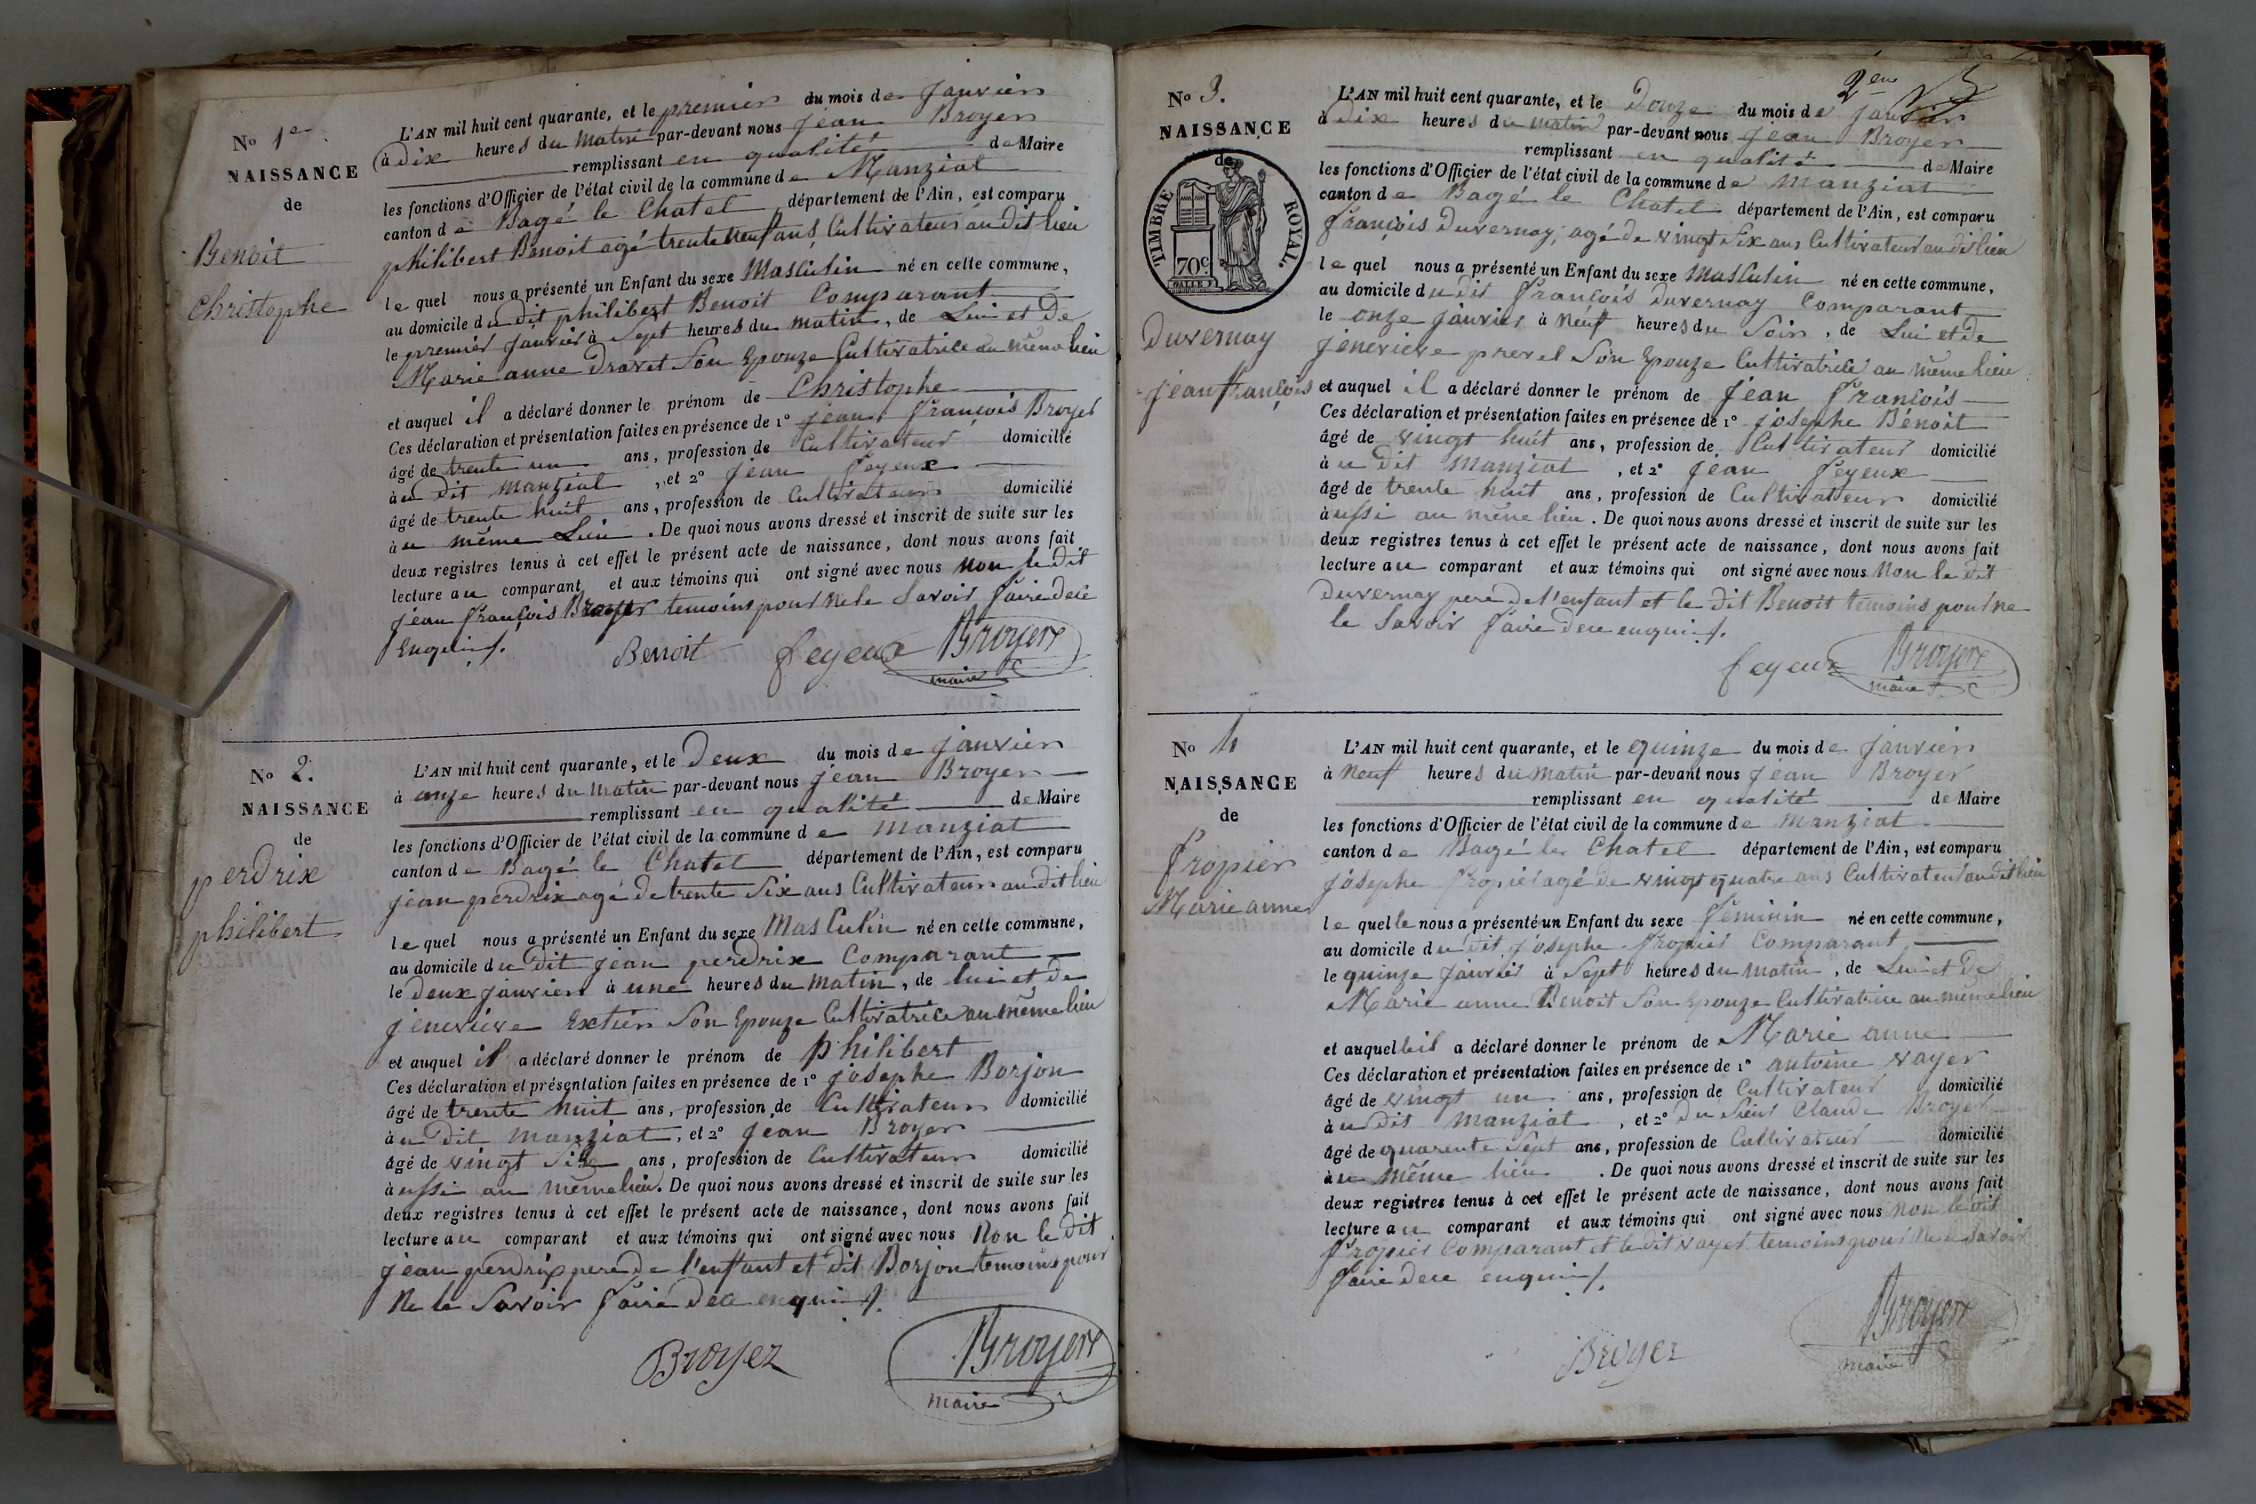 No 1er
NAISSANCE
de
Benoit
Christophe
L'AN mil huit cent quarante, et le premier du mois de janvier
à dix heures du matin par-devant nous jean Broyer
remplissant en qualité de Maire
les fonctions d'Officier de l'état civil de la commune de Manziat
canton de Bagé le Chatel département de l'Ain, est comparu
philibert Benoit agé trente neuf ans, Cultivateur au dit lieu
lequel nous a présenté un Enfant du sexe Masculin né en cette commune,
au domicile du dit philibert Benoit Comparant
le premier janvier à Sept heures du matin, de Lui et De
Marie anne Dravet Son Epouze Cultivatrice au même lieu
et auquel il a déclaré donner le prénom de Christophe
Ces déclaration et présentation faites en présence de 1° jean françois Broyer
âgé de trente un ans, profession de Cultivateur domicilié
à u dit manziat, et 2° jean feyeux
âgé de trente huit ans, profession de Cultivateur domicilié
à u même Lieu. De quoi nous avons dressé et inscrit de suite sur les
deux registres tenus à cet effet le présent acte de naissance, dont nous avons fait
lecture au comparant et aux témoins qui ont signé avec nous Non le Dit
jean françois Broyer temoins pour ne le Savoir faire dece
Enquis/.
Benoit feyeux Broyer
maire
No 2.
NAISSANCE
de
perdrix
philibert
L'AN mil huit cent quarante, et le Deux du mois de janvier
à onze heures du Matin par-devant nous jean Broyer
remplissant en qualité de Maire
les fonctions d'Officier de l'état civil de la commune de manziat
canton de Bagé le Chatel département de l'Ain, est comparu
jean perdrix agé de trente Six ans Cultivateur au dit lieu
lequel nous a présenté un Enfant du sexe Masculin né en cette commune,
au domicile du dit jean perdrix Comparant
le deux janvier à une heures du Matin, de lui et de
jenevieve Extier Son Epouze Cultivatrice au même lieu
et auquel il a déclaré donner le prénom de philibert
Ces déclaration et présentation faites en présence de 1° josephe Borjon
âgé de trente huit ans, profession de Cultivateur domicilié
à u Dit manziat, et 2° jean Broyer
âgé de vingt Six ans, profession de Cultivateur domicilié
à ussi au même lieu. De quoi nous avons dressé et inscrit de suite sur les
deux registres tenus à cet effet le présent acte de naissance, dont nous avons fait
lecture au comparant et aux témoins qui ont signé avec nous Non le Dit
jean perdrix pere de l'enfant et dit Borjon temoins pour
Ne le Savoir faire dece enquis/.
Broyer Broyer
maire
2em
No 3.
NAISSANCE
de
TIMBRE ROYAL.
70c
Duvernay
jean françois
L'AN mil huit cent quarante, et le Douze du mois de janvier
à Dix heures du matin par-devant nous jean Broyer
remplissant en qualité de Maire
les fonctions d'Officier de l'état civil de la commune de manziat
canton de Bagé le Chatel département de l'Ain, est comparu
françois Duvernay, agé de vingt Six ans Cultivateur au dit lieu
lequel nous a présenté un Enfant du sexe Masculin né en cette commune,
au domicile du dit françois Duvernay Comparant
le onze janvier à Neuf heures du Soir, de Lui et de
jenevieve prevel Son Epouze Cultivatrice au même lieu
et auquel il a déclaré donner le prénom de jean françois
Ces déclaration et présentation faites en présence de 1° josephe Bénoit
âgé de vingt huit ans, profession de Cultivateur domicilié
à u Dit manziat, et 2° jean feyeux
âgé de trente huit ans, profession de Cultivateur domicilié
à ussi au même lieu. De quoi nous avons dressé et inscrit de suite sur les
deux registres tenus à cet effet le présent acte de naissance, dont nous avons fait
lecture au comparant et aux témoins qui ont signé avec nous Non le dit
Duvernay pere de l'enfant et le dit Benoit temoins pour ne
le Savoir faire dece enquis/.
feyeux Broyer
maire
No 4
NAISSANCE
de
fropier
Marie anne
L'AN mil huit cent quarante, et le quinze du mois de janvier
à Neuf heures du Matin par-devant nous jean Broyer
remplissant en qualité de Maire
les fonctions d'Officier de l'état civil de la commune de manziat
canton de Bagé le Chatel département de l'Ain, est comparu
josephe fropier agé de vingt quatre ans Cultivateur au dit lieu
le quelle nous a présenté un Enfant du sexe feminin né en cette commune,
au domicile du dit josephe fropier Comparant
le quinze janvier à Sept heures du matin, de Lui et De
Marie anne Benoit Son Epouze Cultivatrice au même lieu
et auquelle il a déclaré donner le prénom de Marie anne
Ces déclaration et présentation faites en présence de 1° antoine vayer
âgé de vingt un ans, profession de Cultivateur domicilié
à u dit manziat, et 2° du Sieur Claude Broyer
âgé de quarente Sept ans, profession de Cultivateur domicilié
à u même lieu. De quoi nous avons dressé et inscrit de suite sur les
deux registres tenus à cet effet le présent acte de naissance, dont nous avons fait
lecture au comparant et aux témoins qui ont signé avec nous Non le dit
fropier Comparant et le dit vayer temoins pour Ne le Savoir
faire dece enquis/.
Broyer Broyer
maire